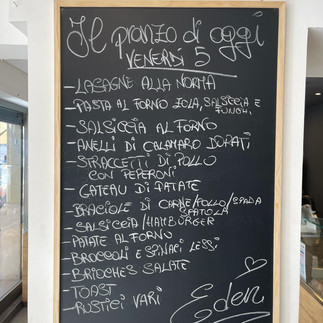 Il pranzo di oggi
VENERDÌ 5
- LASAGNE ALLA NORMA
- PASTA AL FORNO ZOLA, SALSICCIA E
FUNGHI
- SALSICCIA AL FORNO
- ANELLI DI CALAMARO DORATI
- STRACCETTI DI POLLO
CON PEPERONI
- GATEAU DI PATATE
- BRACIOLE DI CARNE/POLLO/SPADA
SPATOLA
- SALSICCIA/HAMBURGER
- PATATE AL FORNO
- BROCCOLI E SPINACI LESSI
- BRIOCHES SALATE
- TOAST
- RUSTICI VARI
Eden